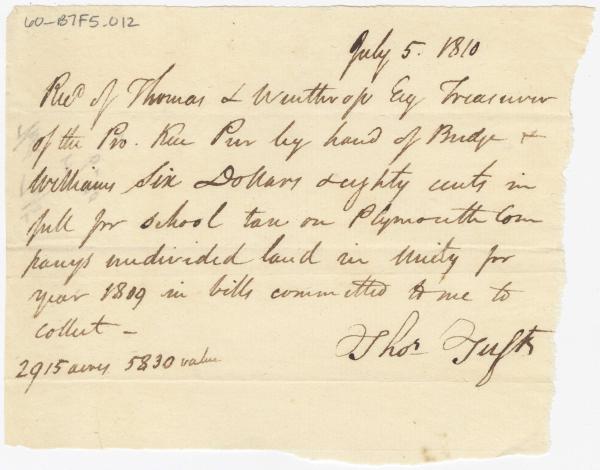 60-B7F5.012
July 5. 1810
Recd of Thomas L Winthrop Esq Treasurer
of the Pro. Ken Pur by hand of Bridge &
Williams Six Dollars & eighty cents in
full for school tax on Plymouth Com
panys undivided land in Unity for
year 1809 in bills committed to me to
collect -
Thos Tufts
2915 acres 5830 value